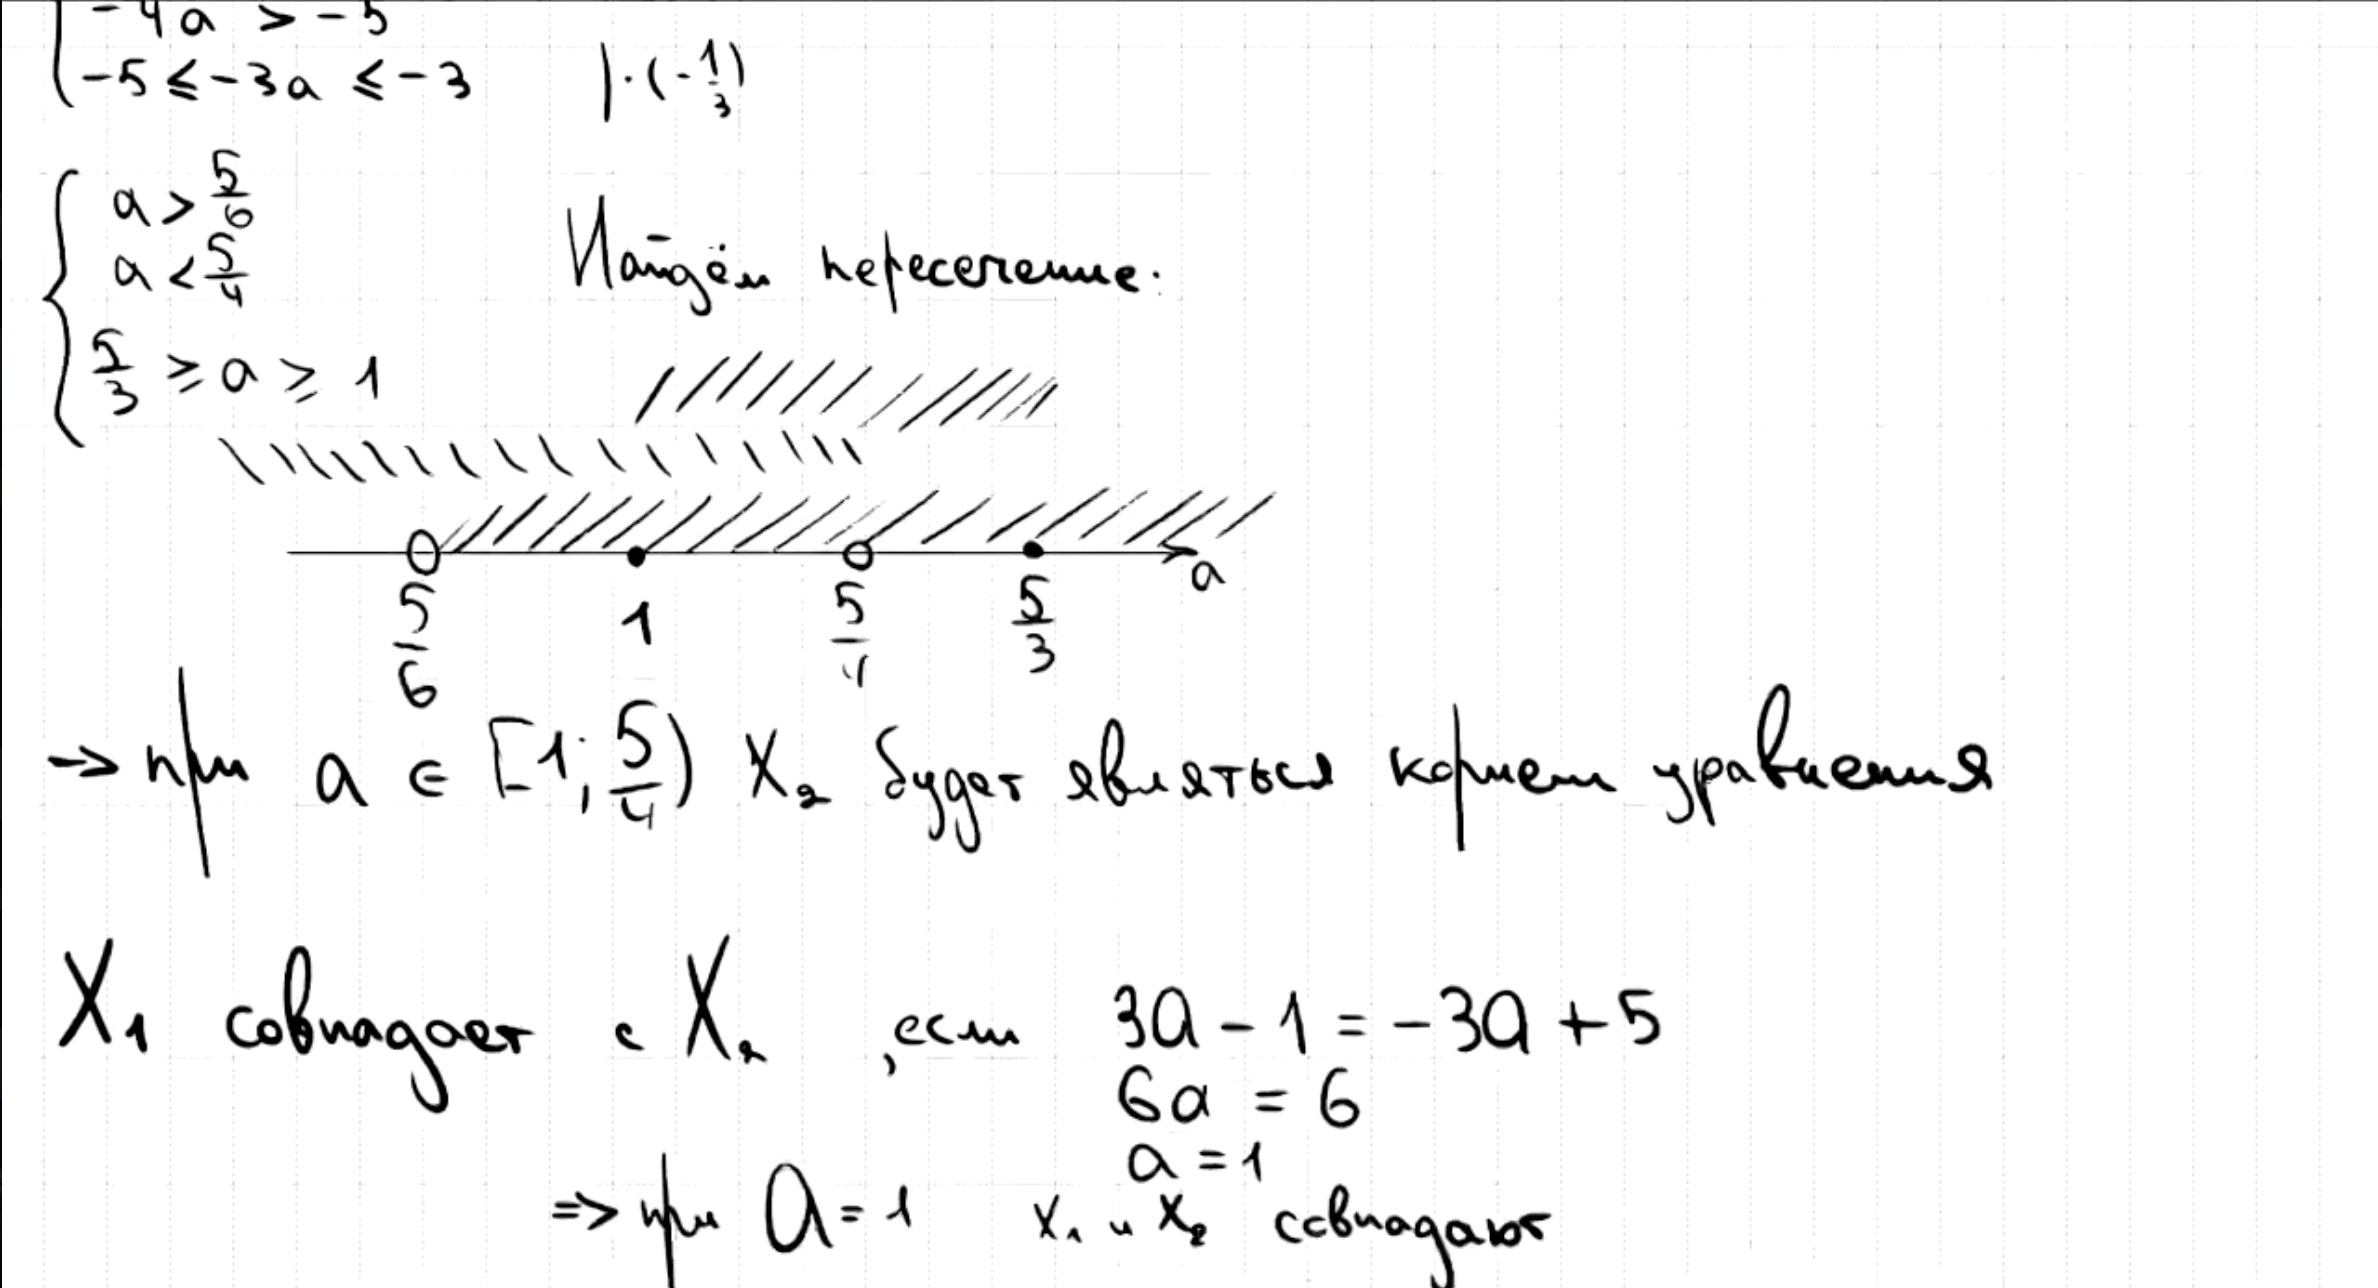 -4a > -5
-5 ≤ -3a ≤ -3 | · (-1/3)
a > 5/6
a < 5/4
5/3 ≥ a ≥ 1
Найдём пересечение:
5/6 1 5/4 5/3 a
=> при a ∈ [1; 5/4) X₂ будет являться корнем уравнения
X₁ совпадает с X₂, если 3a - 1 = -3a + 5
6a = 6
a = 1
=> при a = 1 x₁ и x₂ совпадают